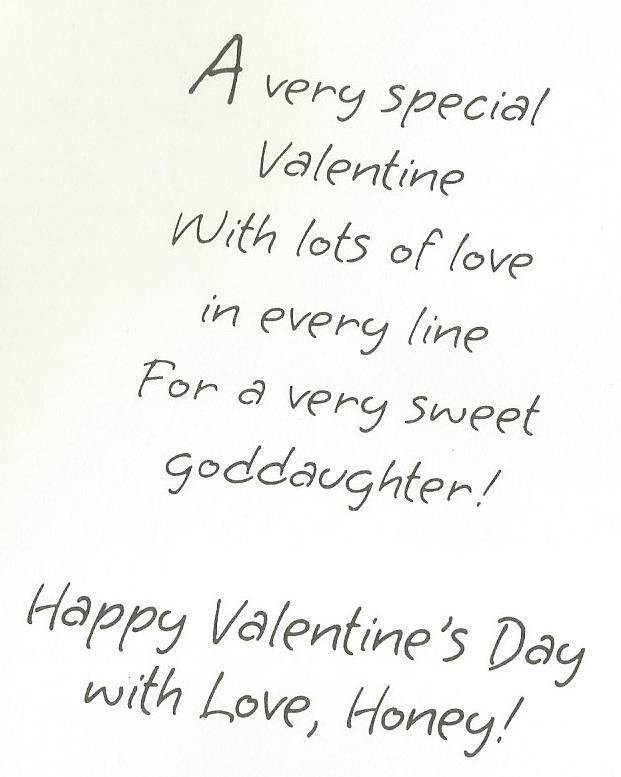 A very special
Valentine
With lots of love
in every line
For a very sweet
goddaughter!
Happy Valentine's Day
with Love, Honey!